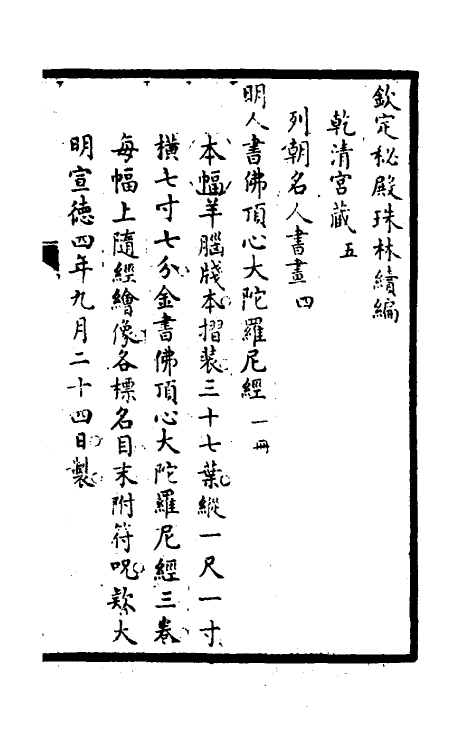 欽定秘殿珠林續編
乾清宮藏五
列朝名人書畫四
明人書佛頂心大陀羅尼經一冊
本幅羊腦牋本摺裝三十七葉縱一尺一寸
橫七寸七分金書佛頂心大陀羅尼經三卷
每幅上隨經繪像各標名目末附符呪款大
明宣德四年九月二十四日製